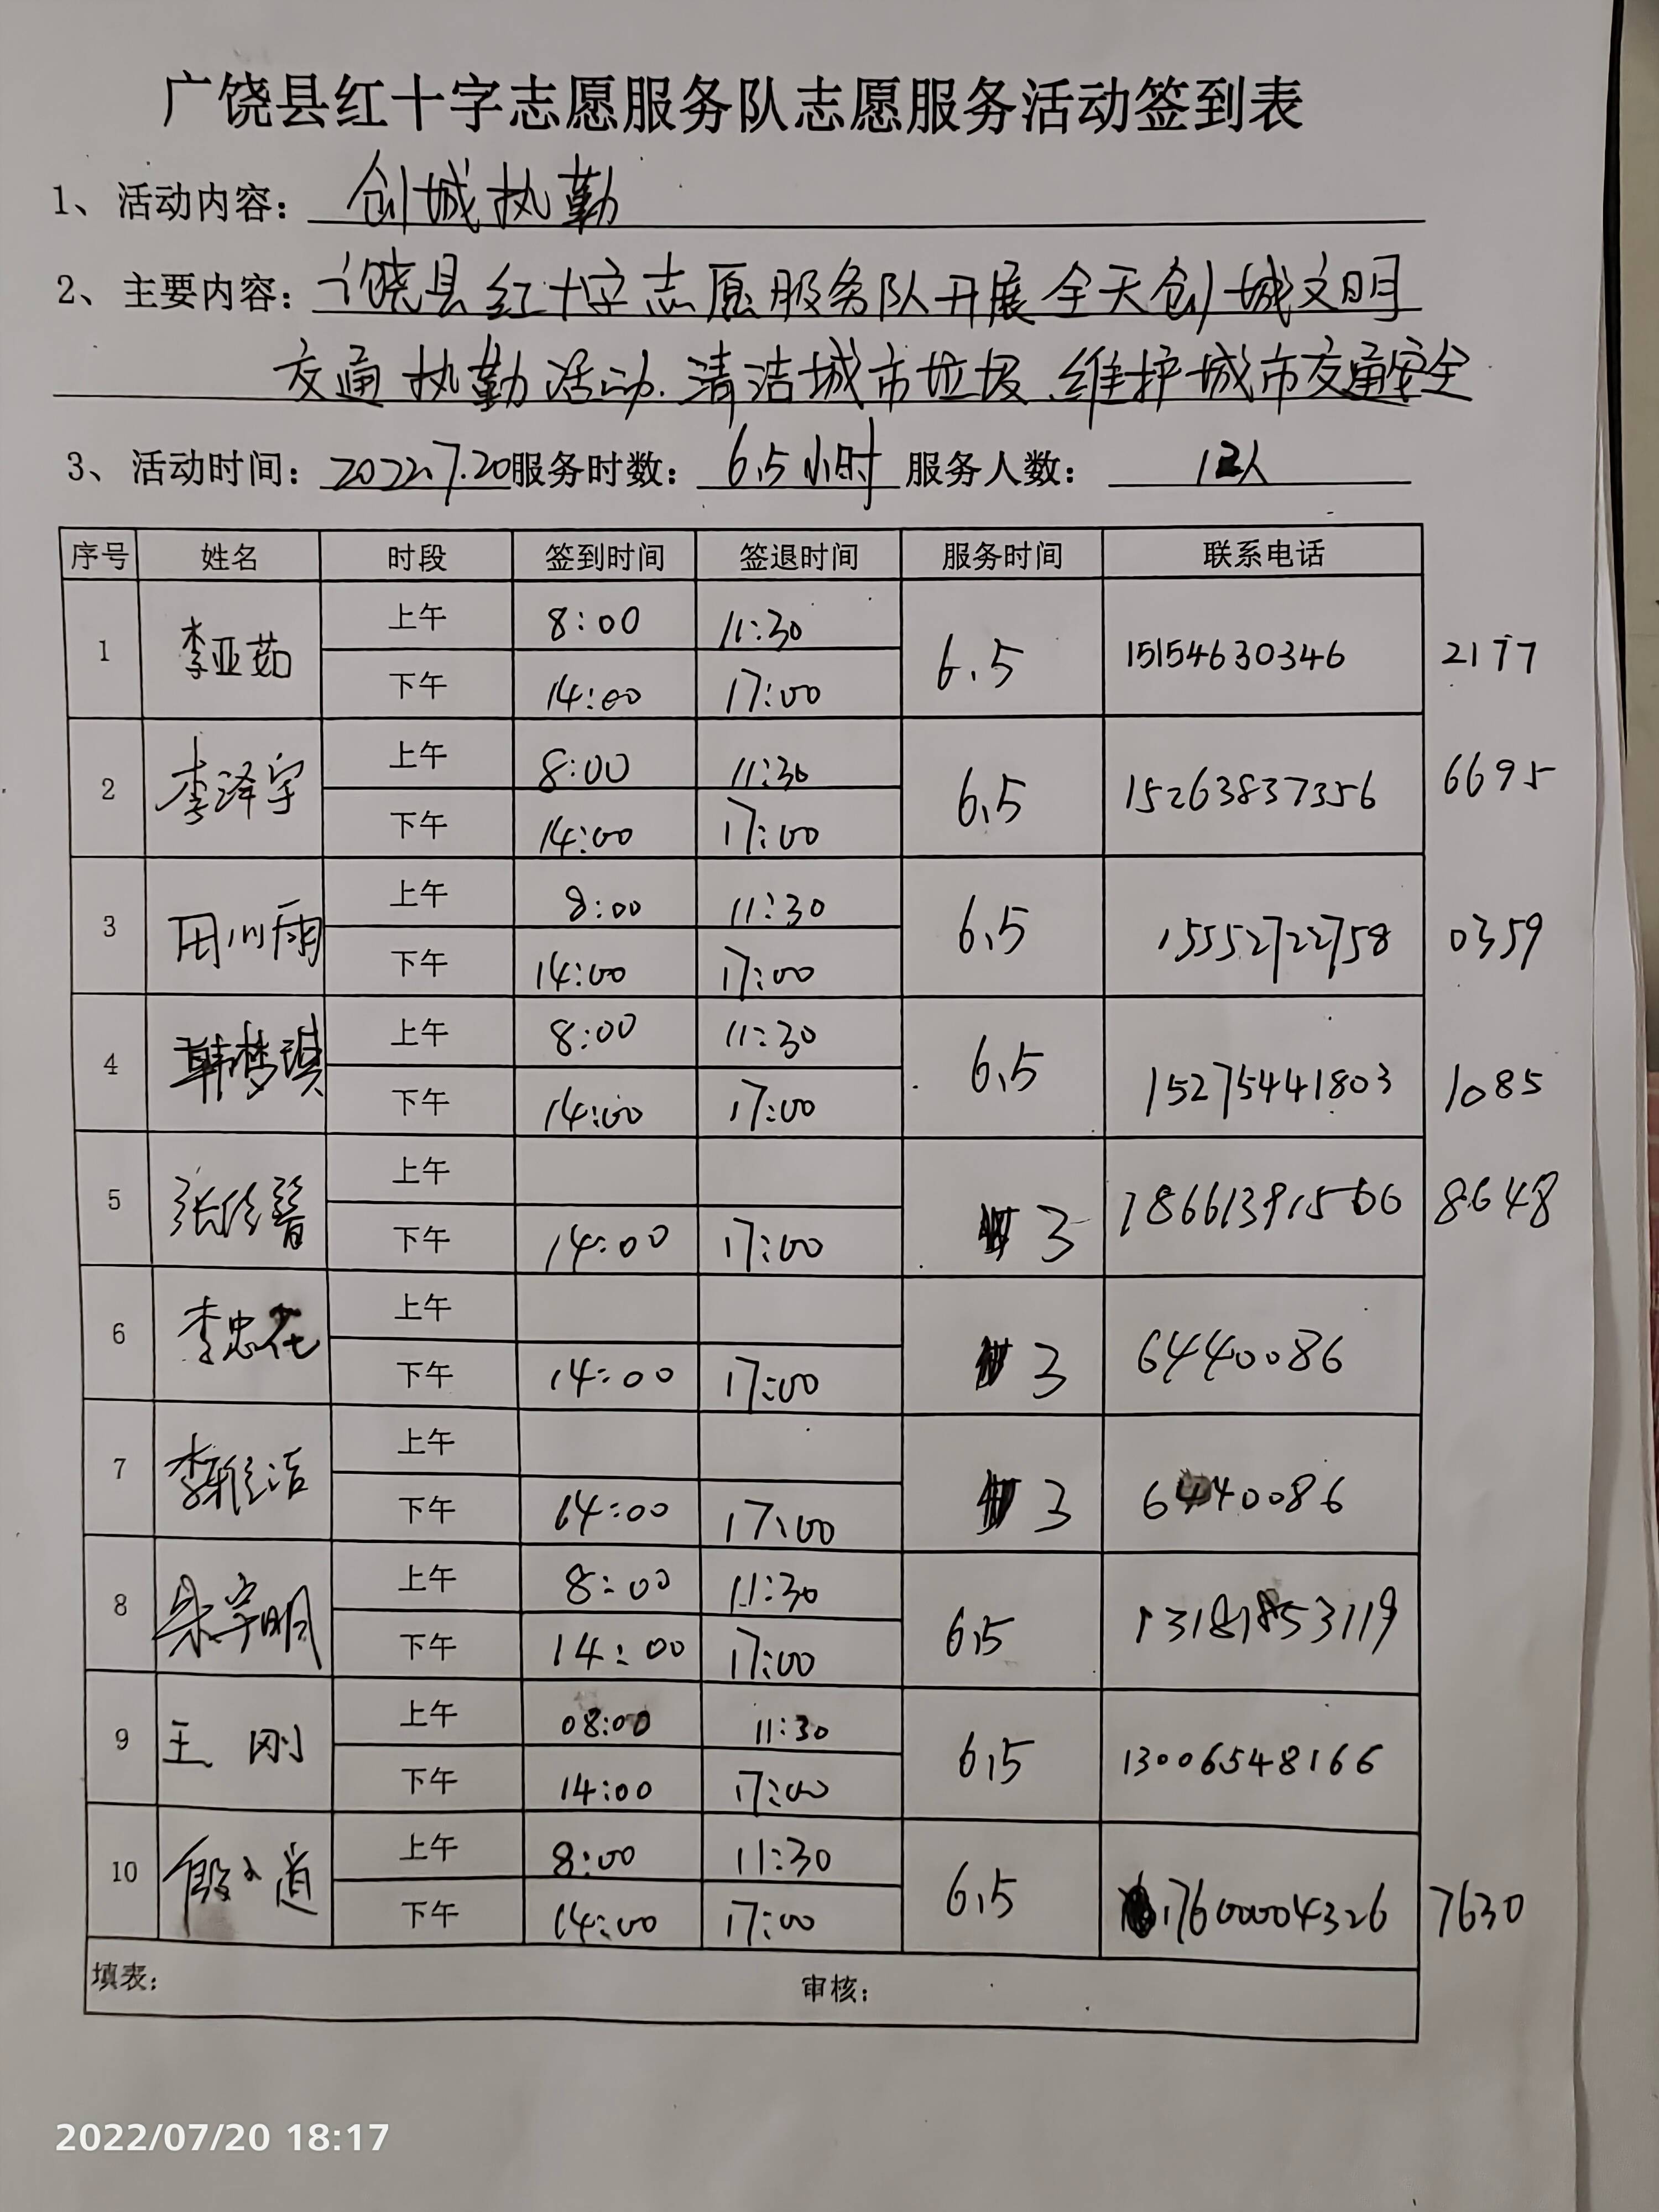 广饶县红十字志愿服务队志愿服务活动签到表
1、活动内容：创城执勤
2、主要内容：广饶县红十字志愿服务队开展全天创城文明
交通执勤活动.清洁城市垃圾、维护城市交通安全
3、活动时间：2022.7.20 服务时数：6.5小时 服务人数：12人
序号 姓名 时段 签到时间 签退时间 服务时间 联系电话
1 李亚茹 上午 8:00 11:30 6.5 15154630346 2177
下午 14:00 17:00
2 李泽宇 上午 8:00 11:30 6.5 15263837356 6695
下午 14:00 17:00
3 田川雨 上午 8:00 11:30 6.5 15552722758 0359
下午 14:00 17:00
4 韩梦琪 上午 8:00 11:30 6.5 15275441803 1085
下午 14:00 17:00
5 上午 3 8648
下午 14:00 17:00
6 李忠花 上午 3 6440086
下午 14:00 17:00
7 李雅洁 上午 3 6440086
下午 14:00 17:00
8 上午 8:00 11:30 6.5 13181853119
下午 14:00 17:00
9 王刚 上午 08:00 11:30 6.5 13006548166
下午 14:00 17:00
10 上午 8:00 11:30 6.5 17600004326 7630
下午 14:00 17:00
填表： 审核：
2022/07/20 18:17